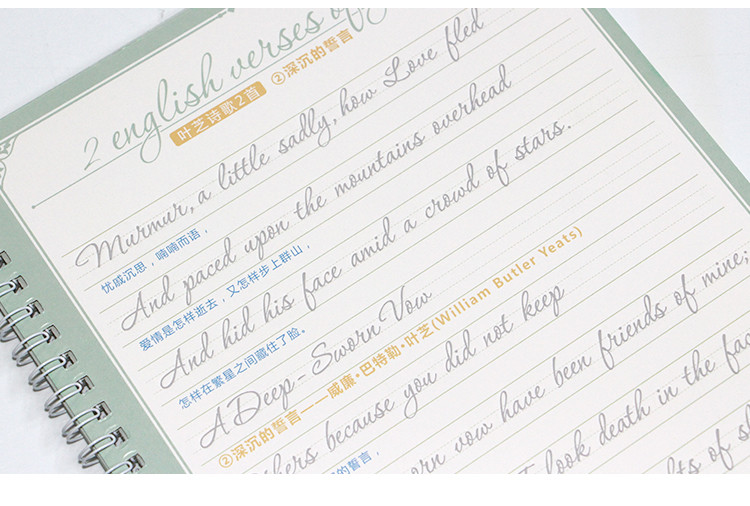 2 english verses of
叶芝诗歌2首 ②深沉的誓言
Murmur, a little sadly, how Love fled
忧戚沉思，喃喃而语，
And paced upon the mountains overhead
爱情是怎样逝去，又怎样步上群山，
And hid his face amid a crowd of stars.
怎样在繁星之间藏住了脸。
A Deep-Sworn Vow
②深沉的誓言——威廉·巴特勒·叶芝(William Butler Yeats)
because you did not keep
的誓言，
vow have been friends of mine;
look death in the
of